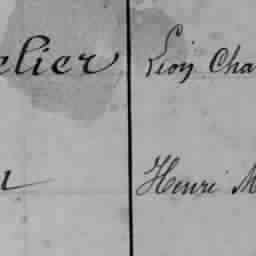 elier Léon Cha
Henri M